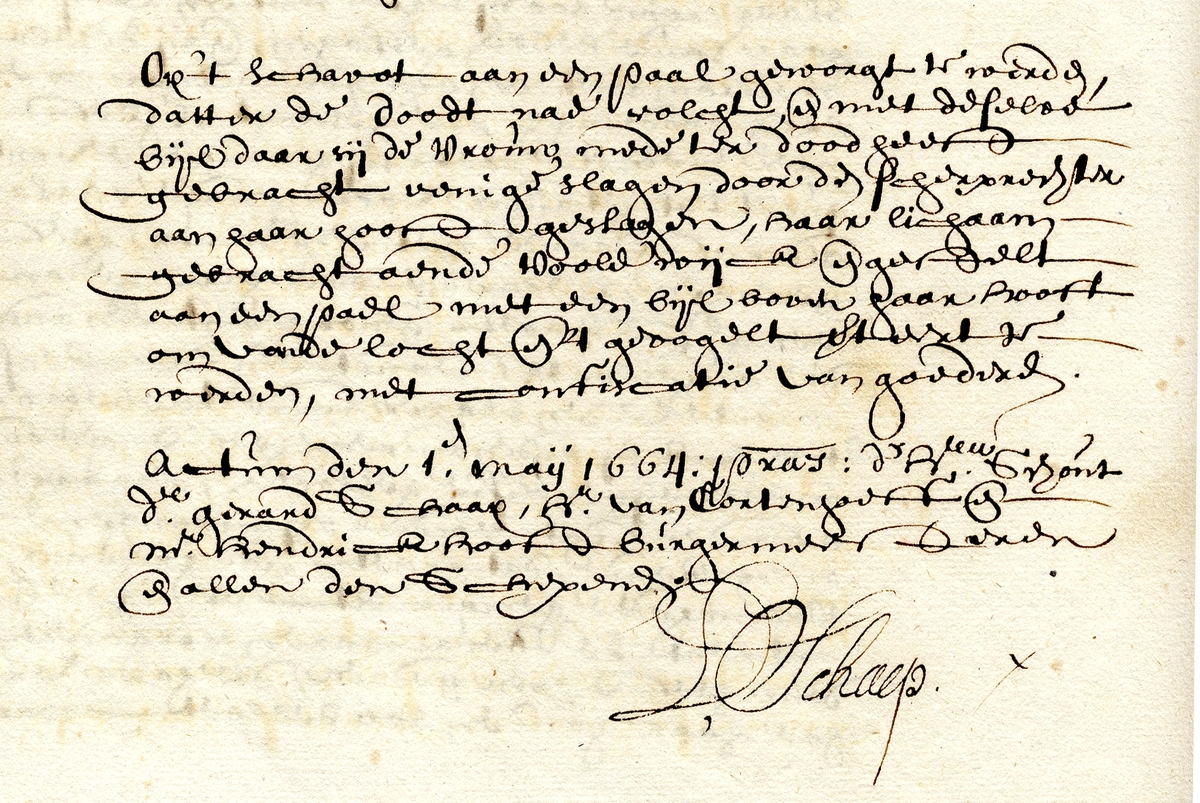 Op't schavot aan een paal geworgt te werden,
datter de doodt nae volcht, en met deselve
bijl daar sij de vrouw mede ter dood heeft
gebracht eenige slagen door den scherprechter
aan haar hooft geslagen, haar lichaam
gebracht aende Voolewijck en gestelt
aan een pael met een bijl boven haar hooft
om vande locht en 't gevogelt verteert te
werden, met confiscatie van goederen.
Actum den 1en. maij 1664: præs: d' Hr. Schout
Dr. gerard Schaap, Hr. van Cortenhoeff en
mr. Hendrick Hooft burgermeesteren
en allen den Schepenen.
Schaep.